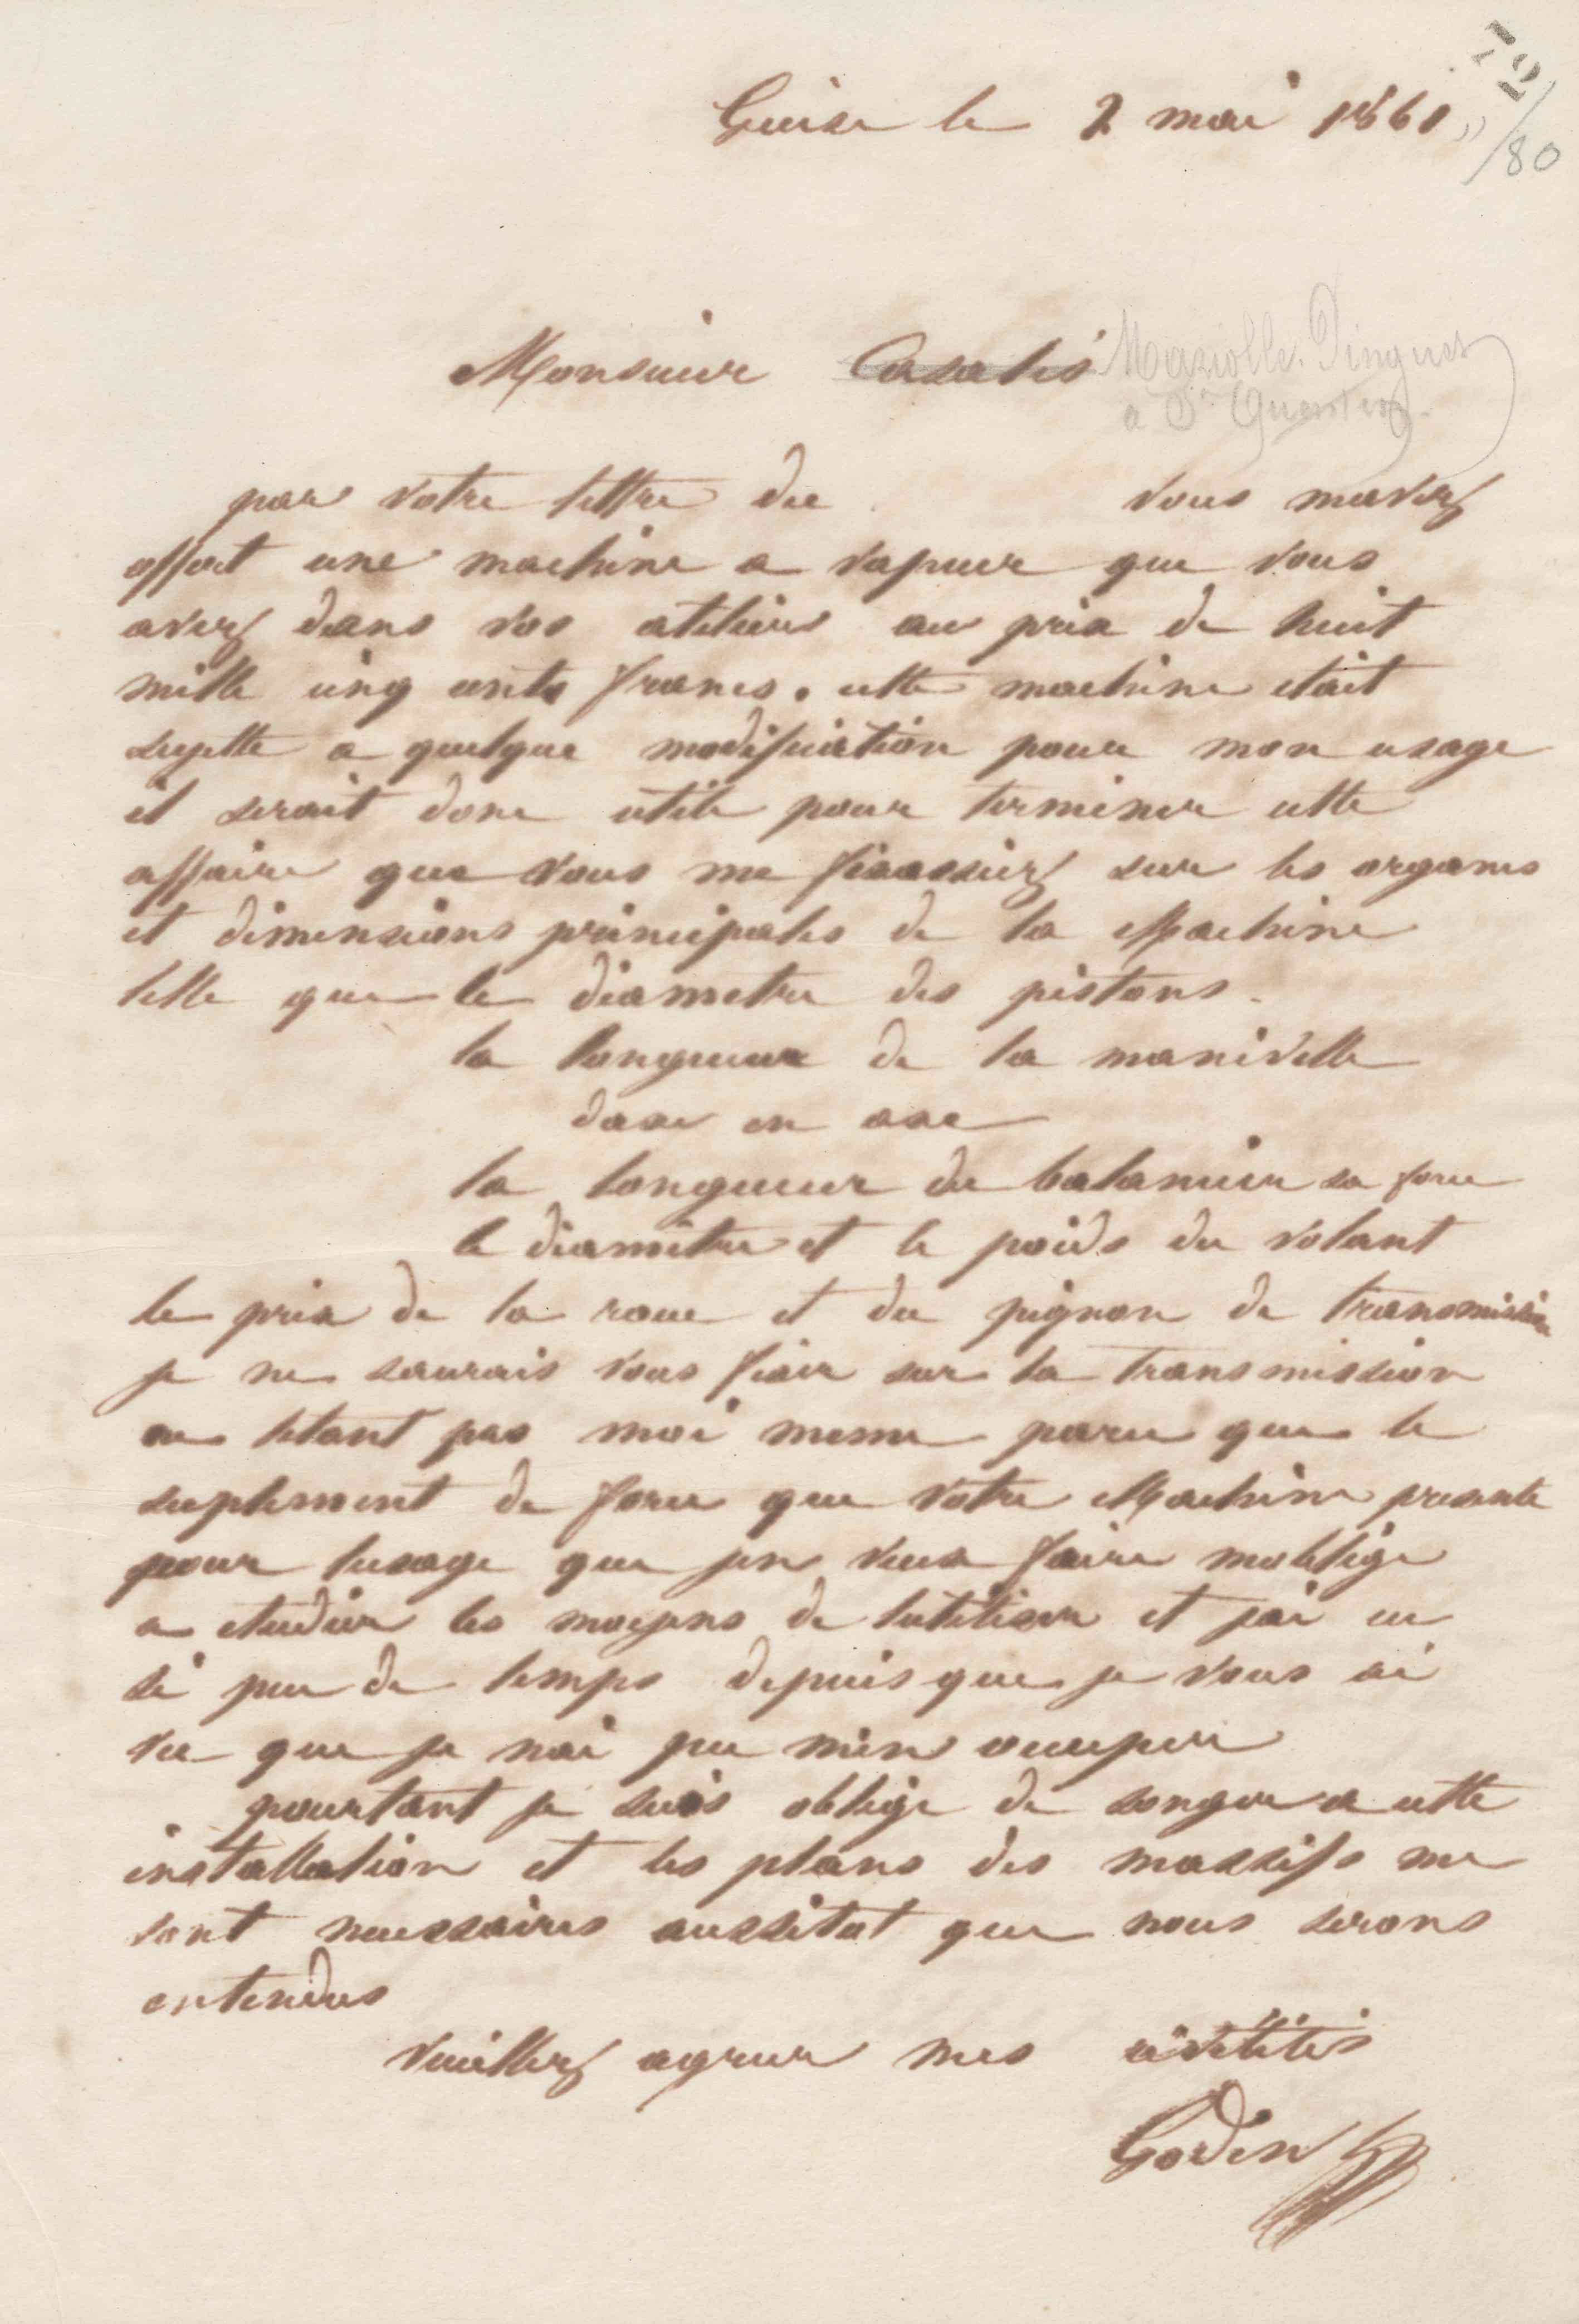 72
/80
Guise le 2 mai 1861
Monsieur Casalis
a St Quentin
par votre lettre du vous mavez
offert une machine a vapeur que vous
avez dans vos ateliers au prix de huit
mille cinq cents francs. cette machine etait
sujette a quelque modification pour mon usage
il serait donc utile pour terminer cette
affaire que vous me fixassiez sur les organes
et dimensions principales de la Machine
telle que le diametre des pistons.
la longueur de la manivelle
daxe en axe
la longueur du balancier sa force
le diamètre et le poids du volant
le prix de la roue et du pignon de transmission
je ne saurais vous fixer sur la transmission
ne letant pas moi meme parce que le
suplement de force que votre Machine presente
pour lusage que jen veux faire moblige
a etudier les moyens de lutiliser et jai eu
si peu de temps depuis que je vous ai
vu que je nai pu men occuper
pourtant je suis oblige de songer a cette
installation et les plans des massifs me
sont necessaires aussitot que nous serons
entendus
Veuillez agreer mes civilités
Godin